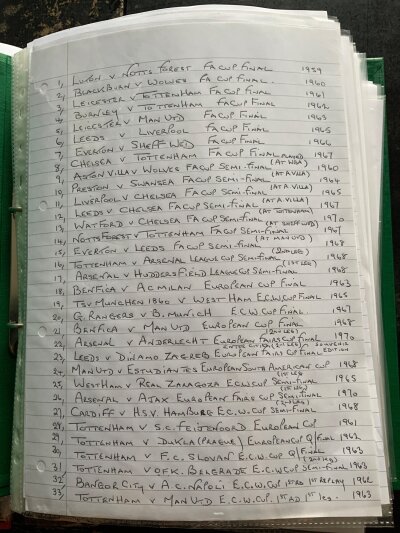 1, LUTON v NOTTS FOREST FA CUP FINAL 1959
2, BLACKBURN v WOLVES FA CUP FINAL 1960
3, LEICESTER v TOTTENHAM FA CUP FINAL 1961
4, BURNLEY v TOTTENHAM FACUP FINAL 1962
5, LEICESTER v MAN UTD FACUP FINAL 1963
6, LEEDS v LIVERPOOL FACUP FINAL 1965
7, EVERTON v SHEFF WED FA CUP FINAL 1966
8, CHELSEA v TOTTENHAM FA CUP FINAL 1967
9, ASTON VILLA v WOLVES FA CUP SEMI-FINAL (AT WBA) 1960
10, PRESTON v SWANSEA FACUP SEMI-FINAL (AT A.VILLA) 1964
11, LIVERPOOL v CHELSEA FACUP SEMI-FINAL (AT A.VILLA) 1965
12, LEEDS v CHELSEA FACUP SEMI-FINAL (AT A.VILLA) 1967
13, WATFORD v CHELSEA FACUP SEMI-FINAL (AT TOTTENHAM) 1970
14, NOTTS FOREST v TOTTENHAM FACUP SEMI-FINAL (AT SHEFF WED) 1967
15, EVERTON v LEEDS FA CUP SEMI-FINAL (AT MAN UTD) 1968
16, TOTTENHAM v ARSENAL LEAGUE CUP SEMI-FINAL (2ND LEG) 1968
17, ARSENAL v HUDDERSFIELD LEAGUE CUP SEMI-FINAL (1ST LEG) 1968
18, BENFICA v A.C MILAN EUROPEAN CUP FINAL 1963
19, TSV MUNCHEN 1860 v WEST HAM E.C.W.CUP FINAL 1965
20, G. RANGERS v B. MUNICH E.C.W CUP FINAL 1967
21, BENFICA v MAN UTD EUROPEAN CUP FINAL 1968
22, ARSENAL v ANDERLECHT EUROPEAN FAIRS CUP FINAL (2ND LEG) 1970
23, LEEDS v DINAMO ZAGREB EUROPEAN FAIRS CUP FINAL (2ND LEG) SOUVENIR EDITION
24, MAN UTD v ESTUDIANTES EUROPEAN SOUTH AMERICAN CUP 1968
25, WEST HAM v REAL ZARAGOZA E.C.W.CUP SEMI-FINAL 1ST LEG 1965
26, ARSENAL v AJAX EUROPEAN FAIRS CUP SEMI-FINAL (1ST LEG) 1970
27, CARDIFF v H.S.V. HAMBURG E.C.W.CUP SEMI-FINAL (2ND LEG) 1968
28, TOTTENHAM v S.C. FEIJENOORD EUROPEAN CUP 1961
29, TOTTENHAM v DUKLA (PRAGUE) EUROPEAN CUP Q/FINAL 1962
30, TOTTENHAM v F.C. SLOVAN E.C.W.CUP Q/FINAL 1963
31, TOTTENHAM v OFK. BELGRADE E.C.W CUP SEMI-FINAL (2ND LEG) 1963
32, BANGOR CITY v A.C. NAPOLI E.C.W.CUP 1ST RD 1ST REPLAY 1962
33, TOTTENHAM v MAN UTD E.C.W.CUP. 1ST RD 1ST LEG. 1963